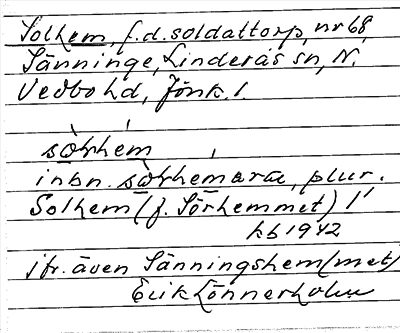 Solhem, f.d. soldattorp, nr 68,
Sänninge, Linderås sn, N.
Vedbo hd, Jönk. l.
inbn. plur.
Solhem (f. Sörhemmet) l
kb 1942
jfr. även Sänningshem(met)
Erik Lönnerholm